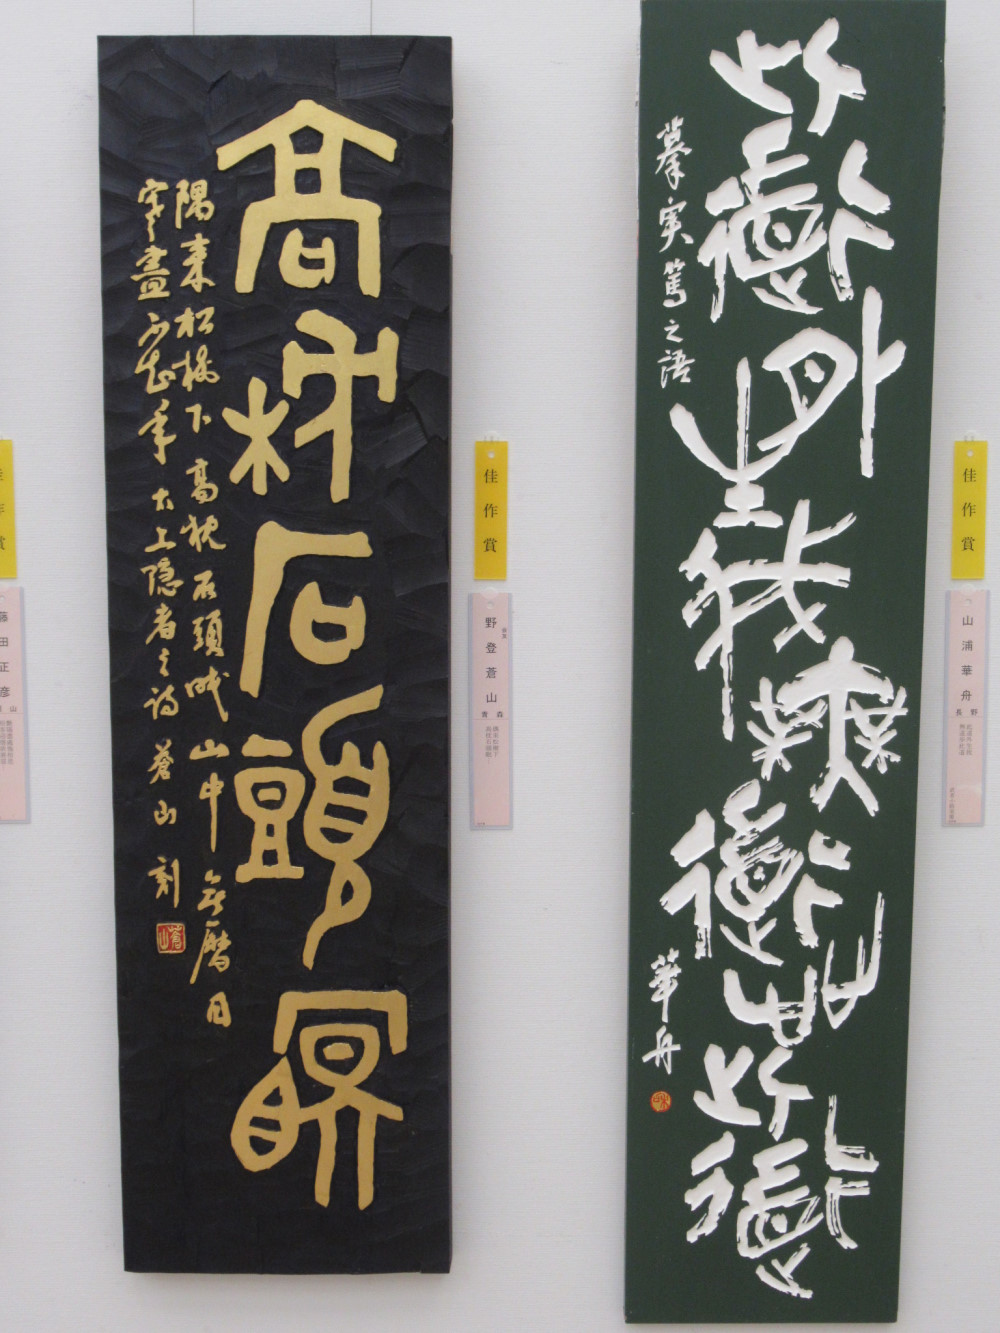 高枕石頭瞑
隅来松樹下高枕石頭眠山中無暦日
寒盡不知年太上隠者之詩 蒼山刻
蒼山
此道外生我無道此道
摹実篤之語
華舟
佳作賞
藤田正彦
佳作賞
野登蒼山
青森
佳作賞
山浦華舟
長野